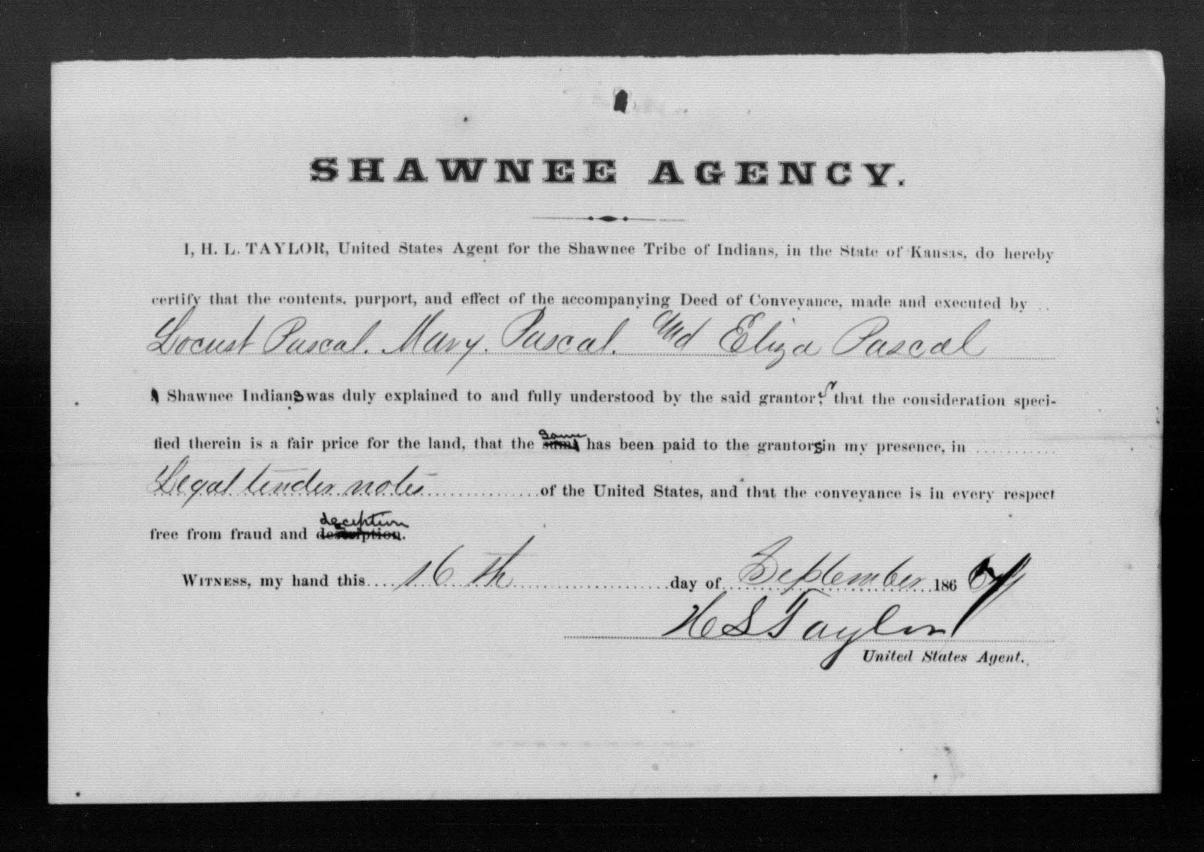 SHAWNEE AGENCY.
I, H. L. TAYLOR, United States Agent for the Shawnee Tribe of Indians, in the State of Kansas, do hereby
certify that the contents, purport, and effect of the accompanying Deed of Conveyance, made and executed by ..
Locust Pascal. Mary. Pascal. And Eliza Pascal
Shawnee Indians was duly explained to and fully understood by the said grantors, that the consideration speci-
fied therein is a fair price for the land, that the same has been paid to the grantors in my presence, in ..........
Legal tender notes .......... of the United States, and that the conveyance is in every respect
free from fraud and deception.
WITNESS, my hand this.... 16th .......... day of September 186
H L Taylor
United States Agent.